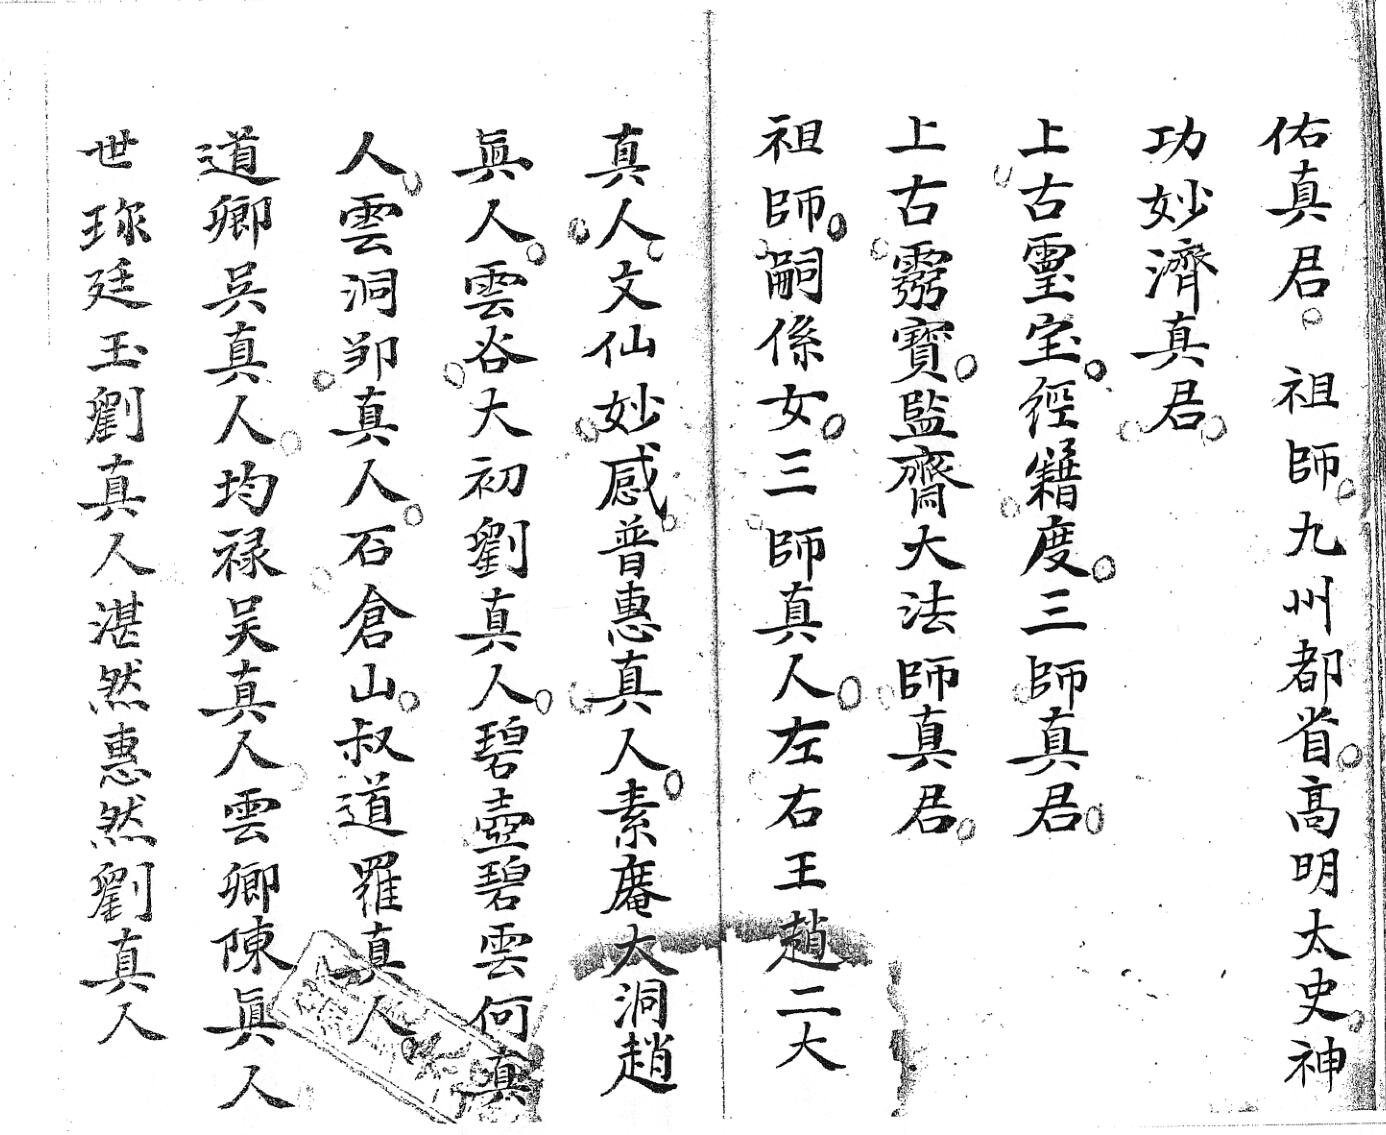 佑真君。祖師九州都省高明太史神
功妙濟真君
上古靈宝經籍度三師真君
上古靈寶監齋大法師真君
祖師嗣係女三師真人左右王趙二大
真人文仙妙感普惠真人素庵太洞趙
眞人雲谷大初劉真人碧壺碧雲何真
人雲洞邹真人石倉山叔道羅真人
道卿吳真人均禄吴真人雲卿陳眞人
世珎廷玉劉真人湛然惠然劉真人